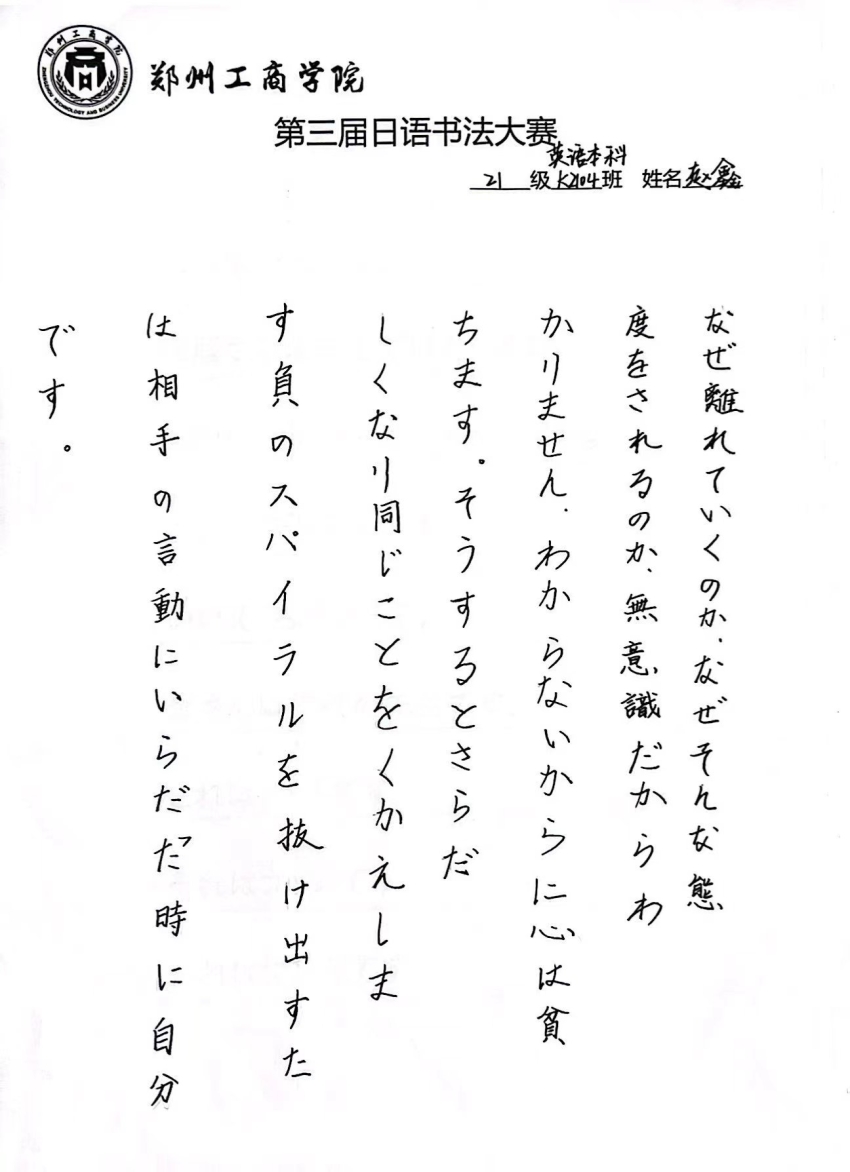 郑州工商学院
ZHENGZHOU TECHNOLOGY AND BUSINESS UNIVERSITY
郑州工商学院
第三届日语书法大赛
英语本科
21级K2104班 姓名赵鑫
なぜ離れていくのか、なぜそんな態
度をされるのか、無意識だからわ
かりません、わからないからに心は貧
ちます。そうするとさらだ
しくなり同じことをくかえしま
す負のスパイラルを抜け出すた
は相手の言動にいらだだ時に自分
です。